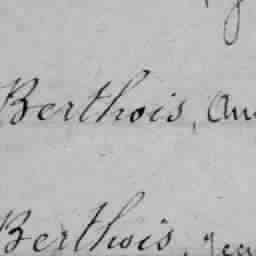 Berthois, Au
Berthois, Jea